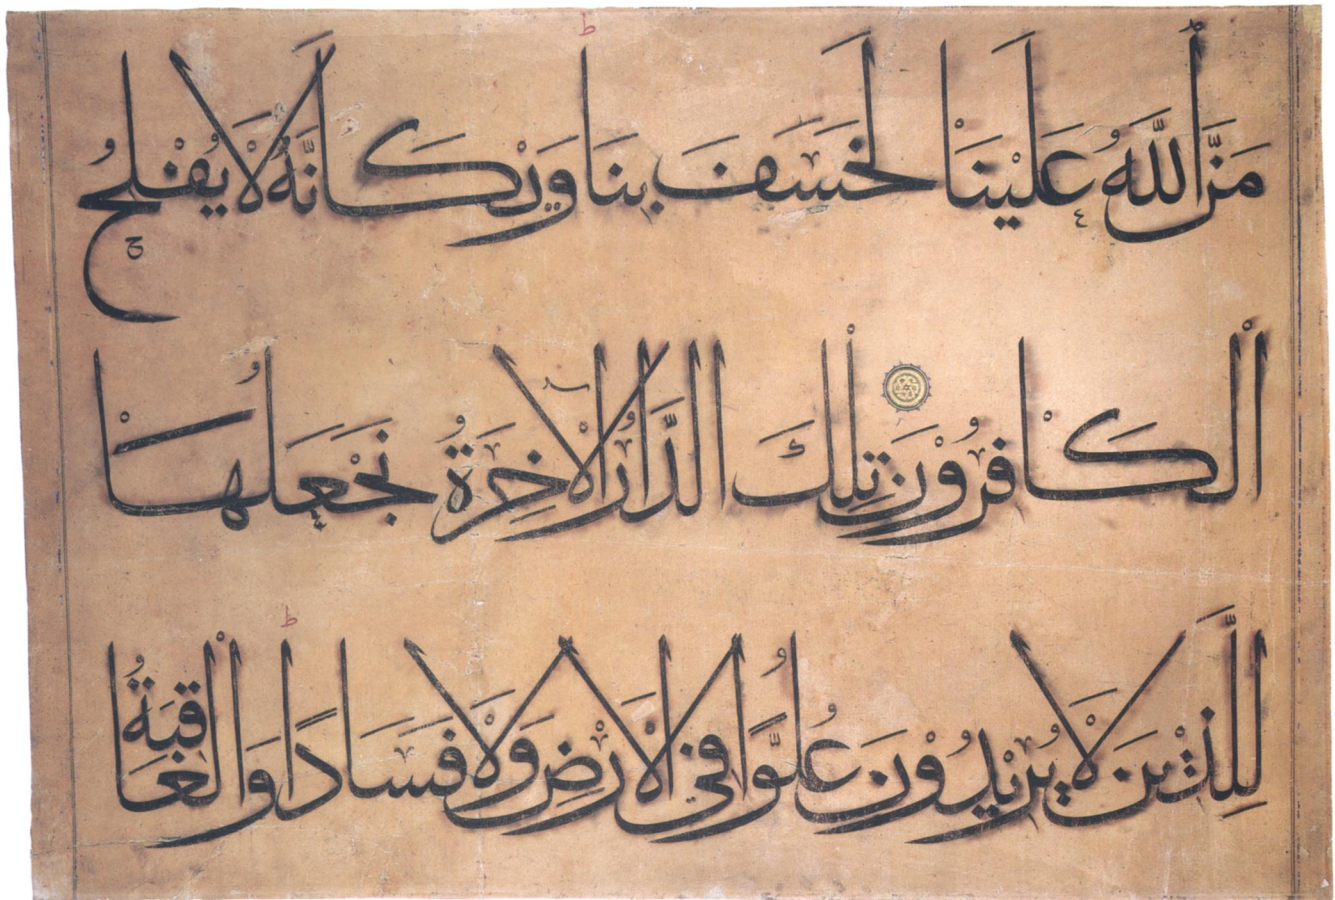 مَنَّ اللهُ عَلَيْنَا لَخَسَفَ بِنَا وَيْكَانَّهُ لَا يُفْلِحُ
الْكَافِرُوْنَ تِلْكَ الدَّارُ الْاٰخِرَةُ نَجْعَلُهَا
لِلَّذِيْنَ لَا يُرِيْدُوْنَ عُلُوًّا فِي الْاَرْضِ وَلَا فَسَادًا وَالْعَاقِبَةُ